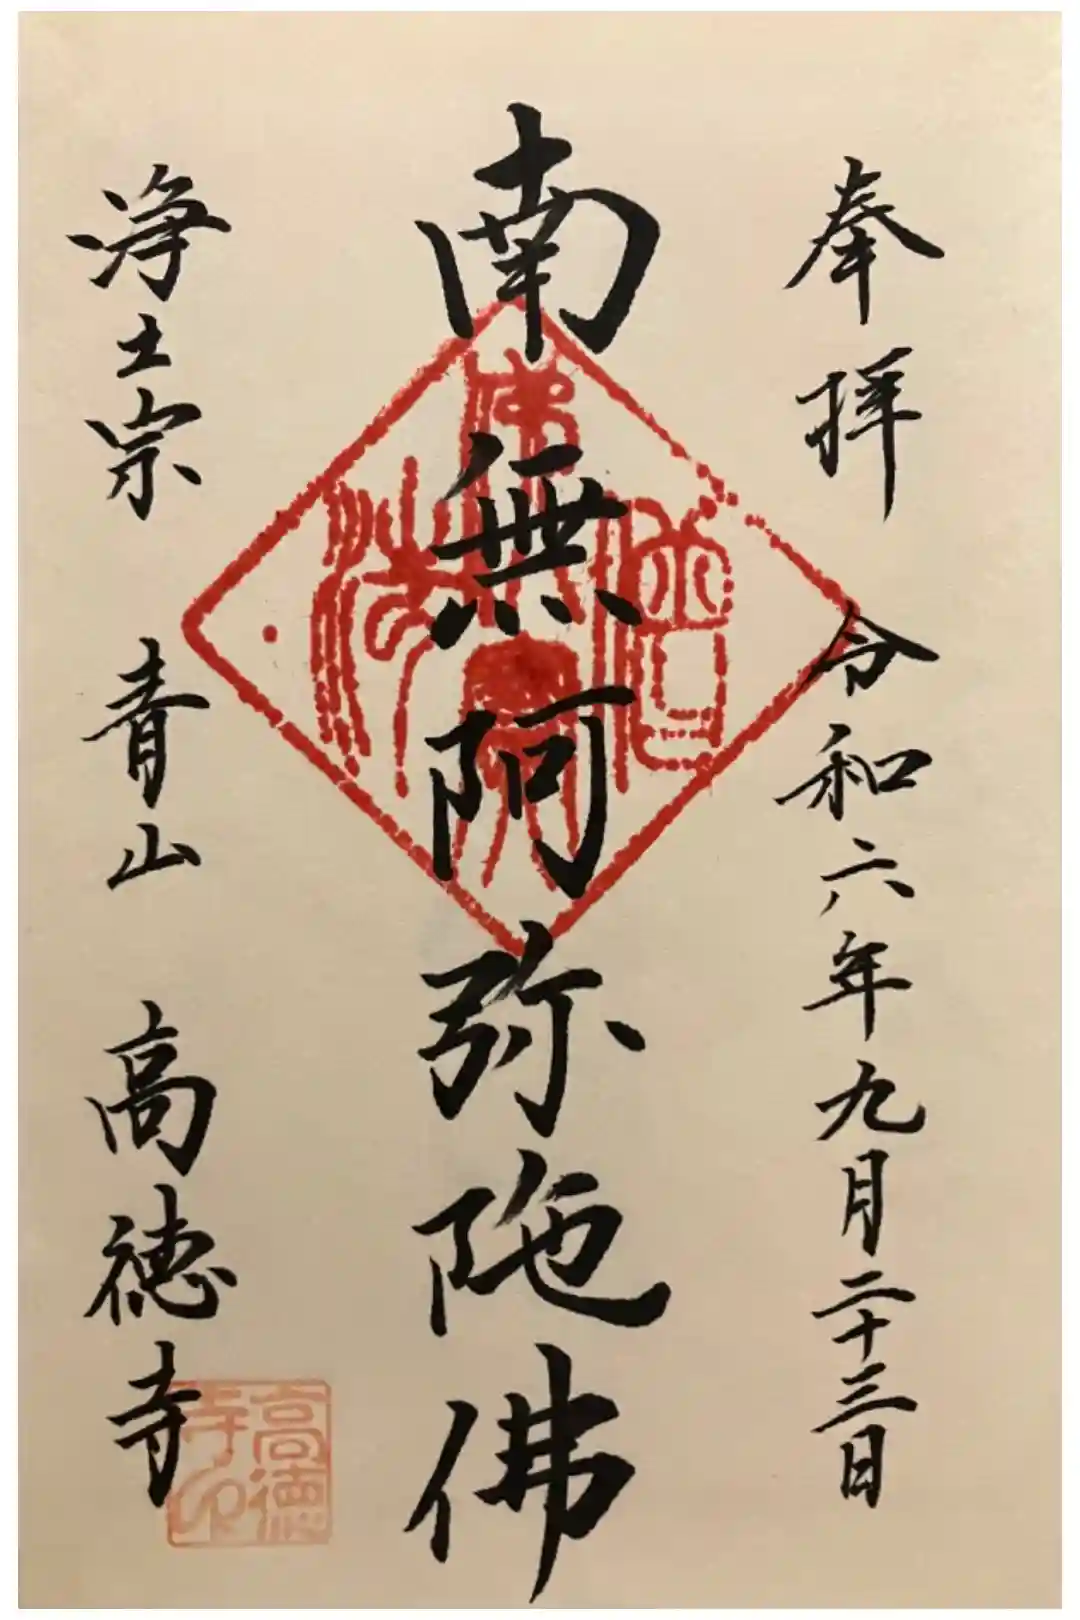 奉拝 令和六年九月二十三日
南無阿弥陁佛
浄土宗 青山 高徳寺
佛法僧寶
高徳寺印